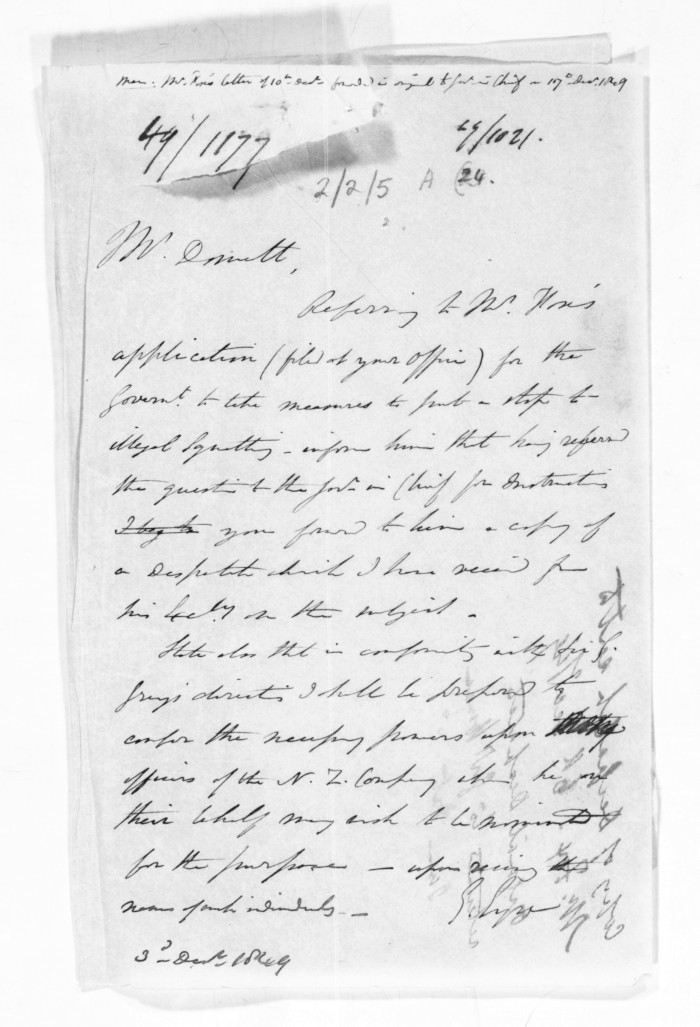 Mem. Mr. Fox's letter of 10th Decr. forwarded in original to Govr. in Chief on 17th Decr. 1849
49/1177
49/1021.
2/2/5 A 24.
Mr. Domett,
Referring to Mr. Fox's
application (filed at your Office) for the
Governt. to take measures to put a stop to
illegal Squatting - inform him that having referred
the question to the Govr. in Chief for Instructions
I beg to you forward to him a copy of
a Despatch which I have received from
his Excely. on the subject.
State also that in conformity with Sir G.
Grey's directions I shall be prepared to
confer the necessary powers upon
officers of the N. Z. Company whom he on
their behalf may wish to be nominated
for the purpose - upon receiving the
names of such individuals -
E. Eyre
3d Decr. 1849